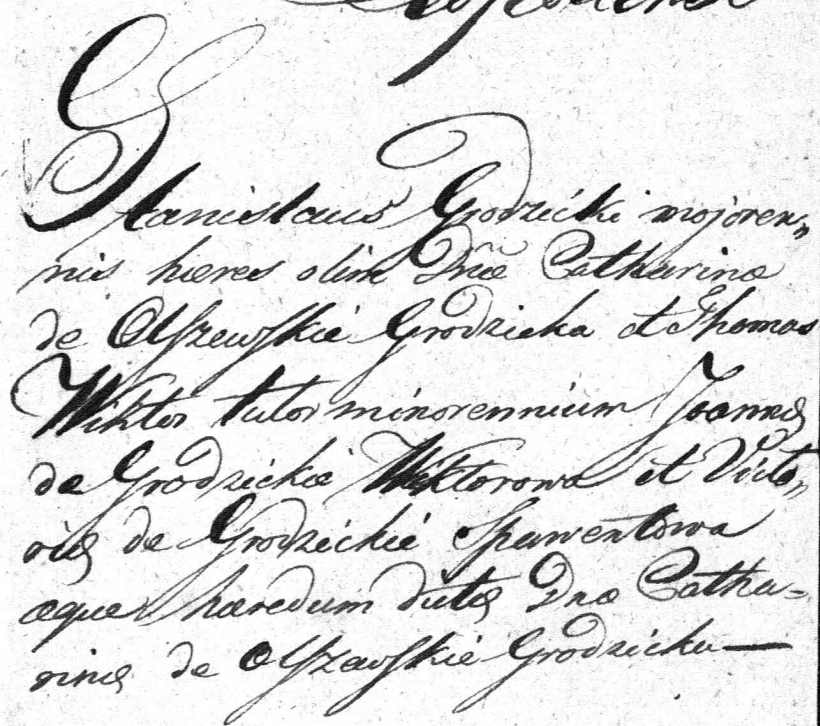 Stanislaus Grodzicki majoren„
nis hæres olim Dnæ Catharinæ
de Olszewskie Grodzicka et Thomas
Wiktor tutor minorennium Joannæ
de Grodzickie Wiktorowa et Victo„
riæ de Grodzickie Spawentowa
æque hæredum dictæ Dnæ Catha=
rinæ de Olszewskie Grodzicka —